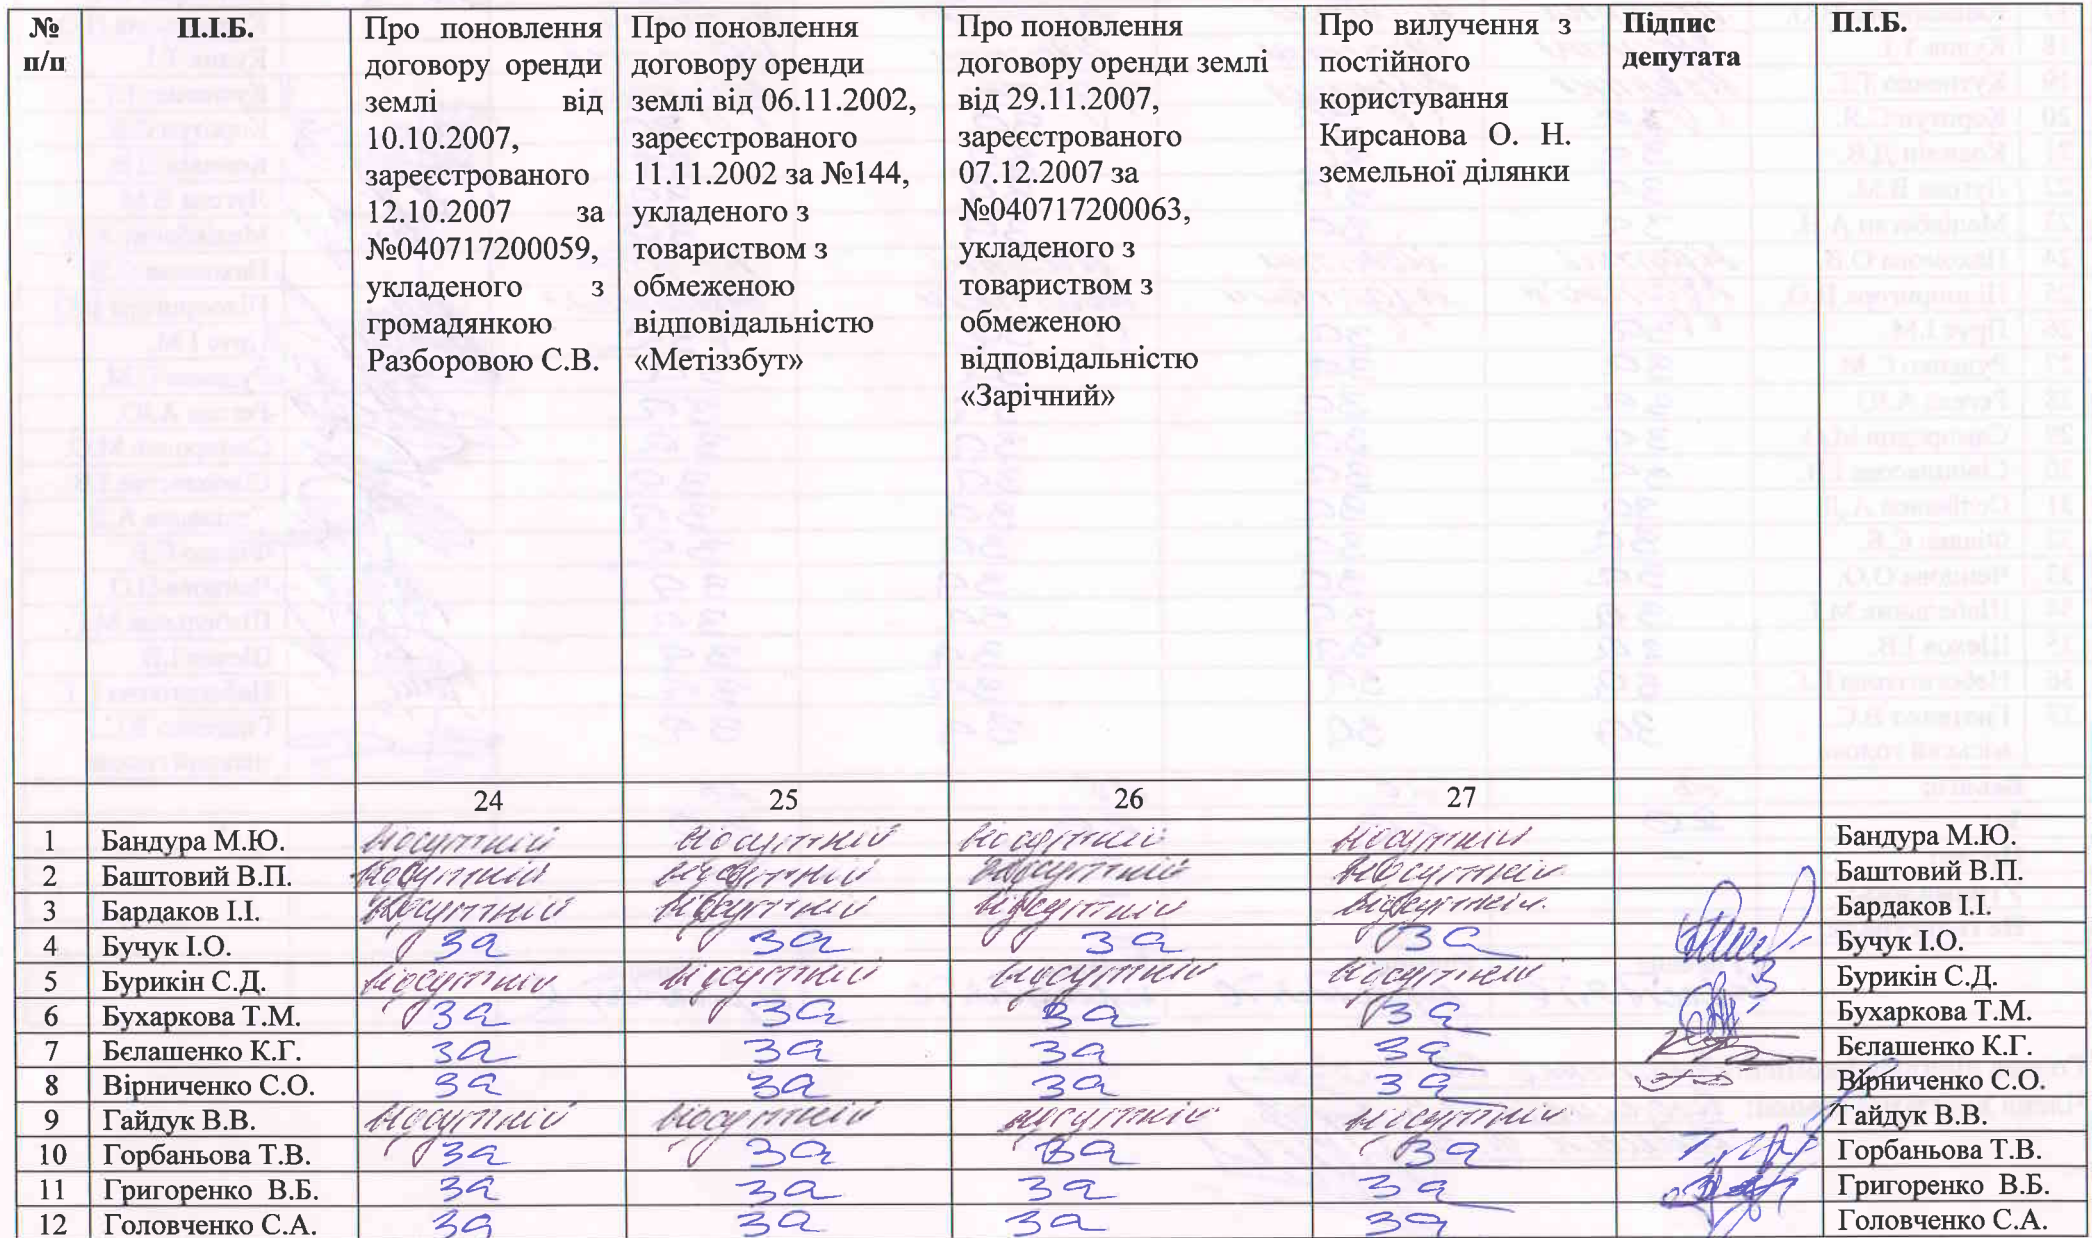 № п/п
П.І.Б.
Про поновлення
договору оренди
землі від
10.10.2007,
зареєстрованого
12.10.2007 за
№040717200059,
укладеного з
громадянкою
Разборовою С.В.
Про поновлення
договору оренди
землі від 06.11.2002,
зареєстрованого
11.11.2002 за №144,
укладеного з
товариством з
обмеженою
відповідальністю
«Метіззбут»
Про поновлення
договору оренди землі
від 29.11.2007,
зареєстрованого
07.12.2007 за
№040717200063,
укладеного з
товариством з
обмеженою
відповідальністю
«Зарічний»
Про вилучення з
постійного
користування
Кирсанова О. Н.
земельної ділянки
Підпис
депутата
П.І.Б.
24 25 26 27
1 Бандура М.Ю. відсутній відсутній відсутній відсутній Бандура М.Ю.
2 Баштовий В.П. відсутній відсутній відсутній відсутній Баштовий В.П.
3 Бардаков І.І. відсутній відсутній відсутній відсутній Бардаков І.І.
4 Бучук І.О. за за за за Бучук І.О.
5 Бурикін С.Д. відсутній відсутній відсутній відсутній Бурикін С.Д.
6 Бухаркова Т.М. за за за за Бухаркова Т.М.
7 Бєлашенко К.Г. за за за за Бєлашенко К.Г.
8 Вірниченко С.О. за за за за Вірниченко С.О.
9 Гайдук В.В. відсутній відсутній відсутній відсутній Гайдук В.В.
10 Горбаньова Т.В. за за за за Горбаньова Т.В.
11 Григоренко В.Б. за за за за Григоренко В.Б.
12 Головченко С.А. за за за за Головченко С.А.